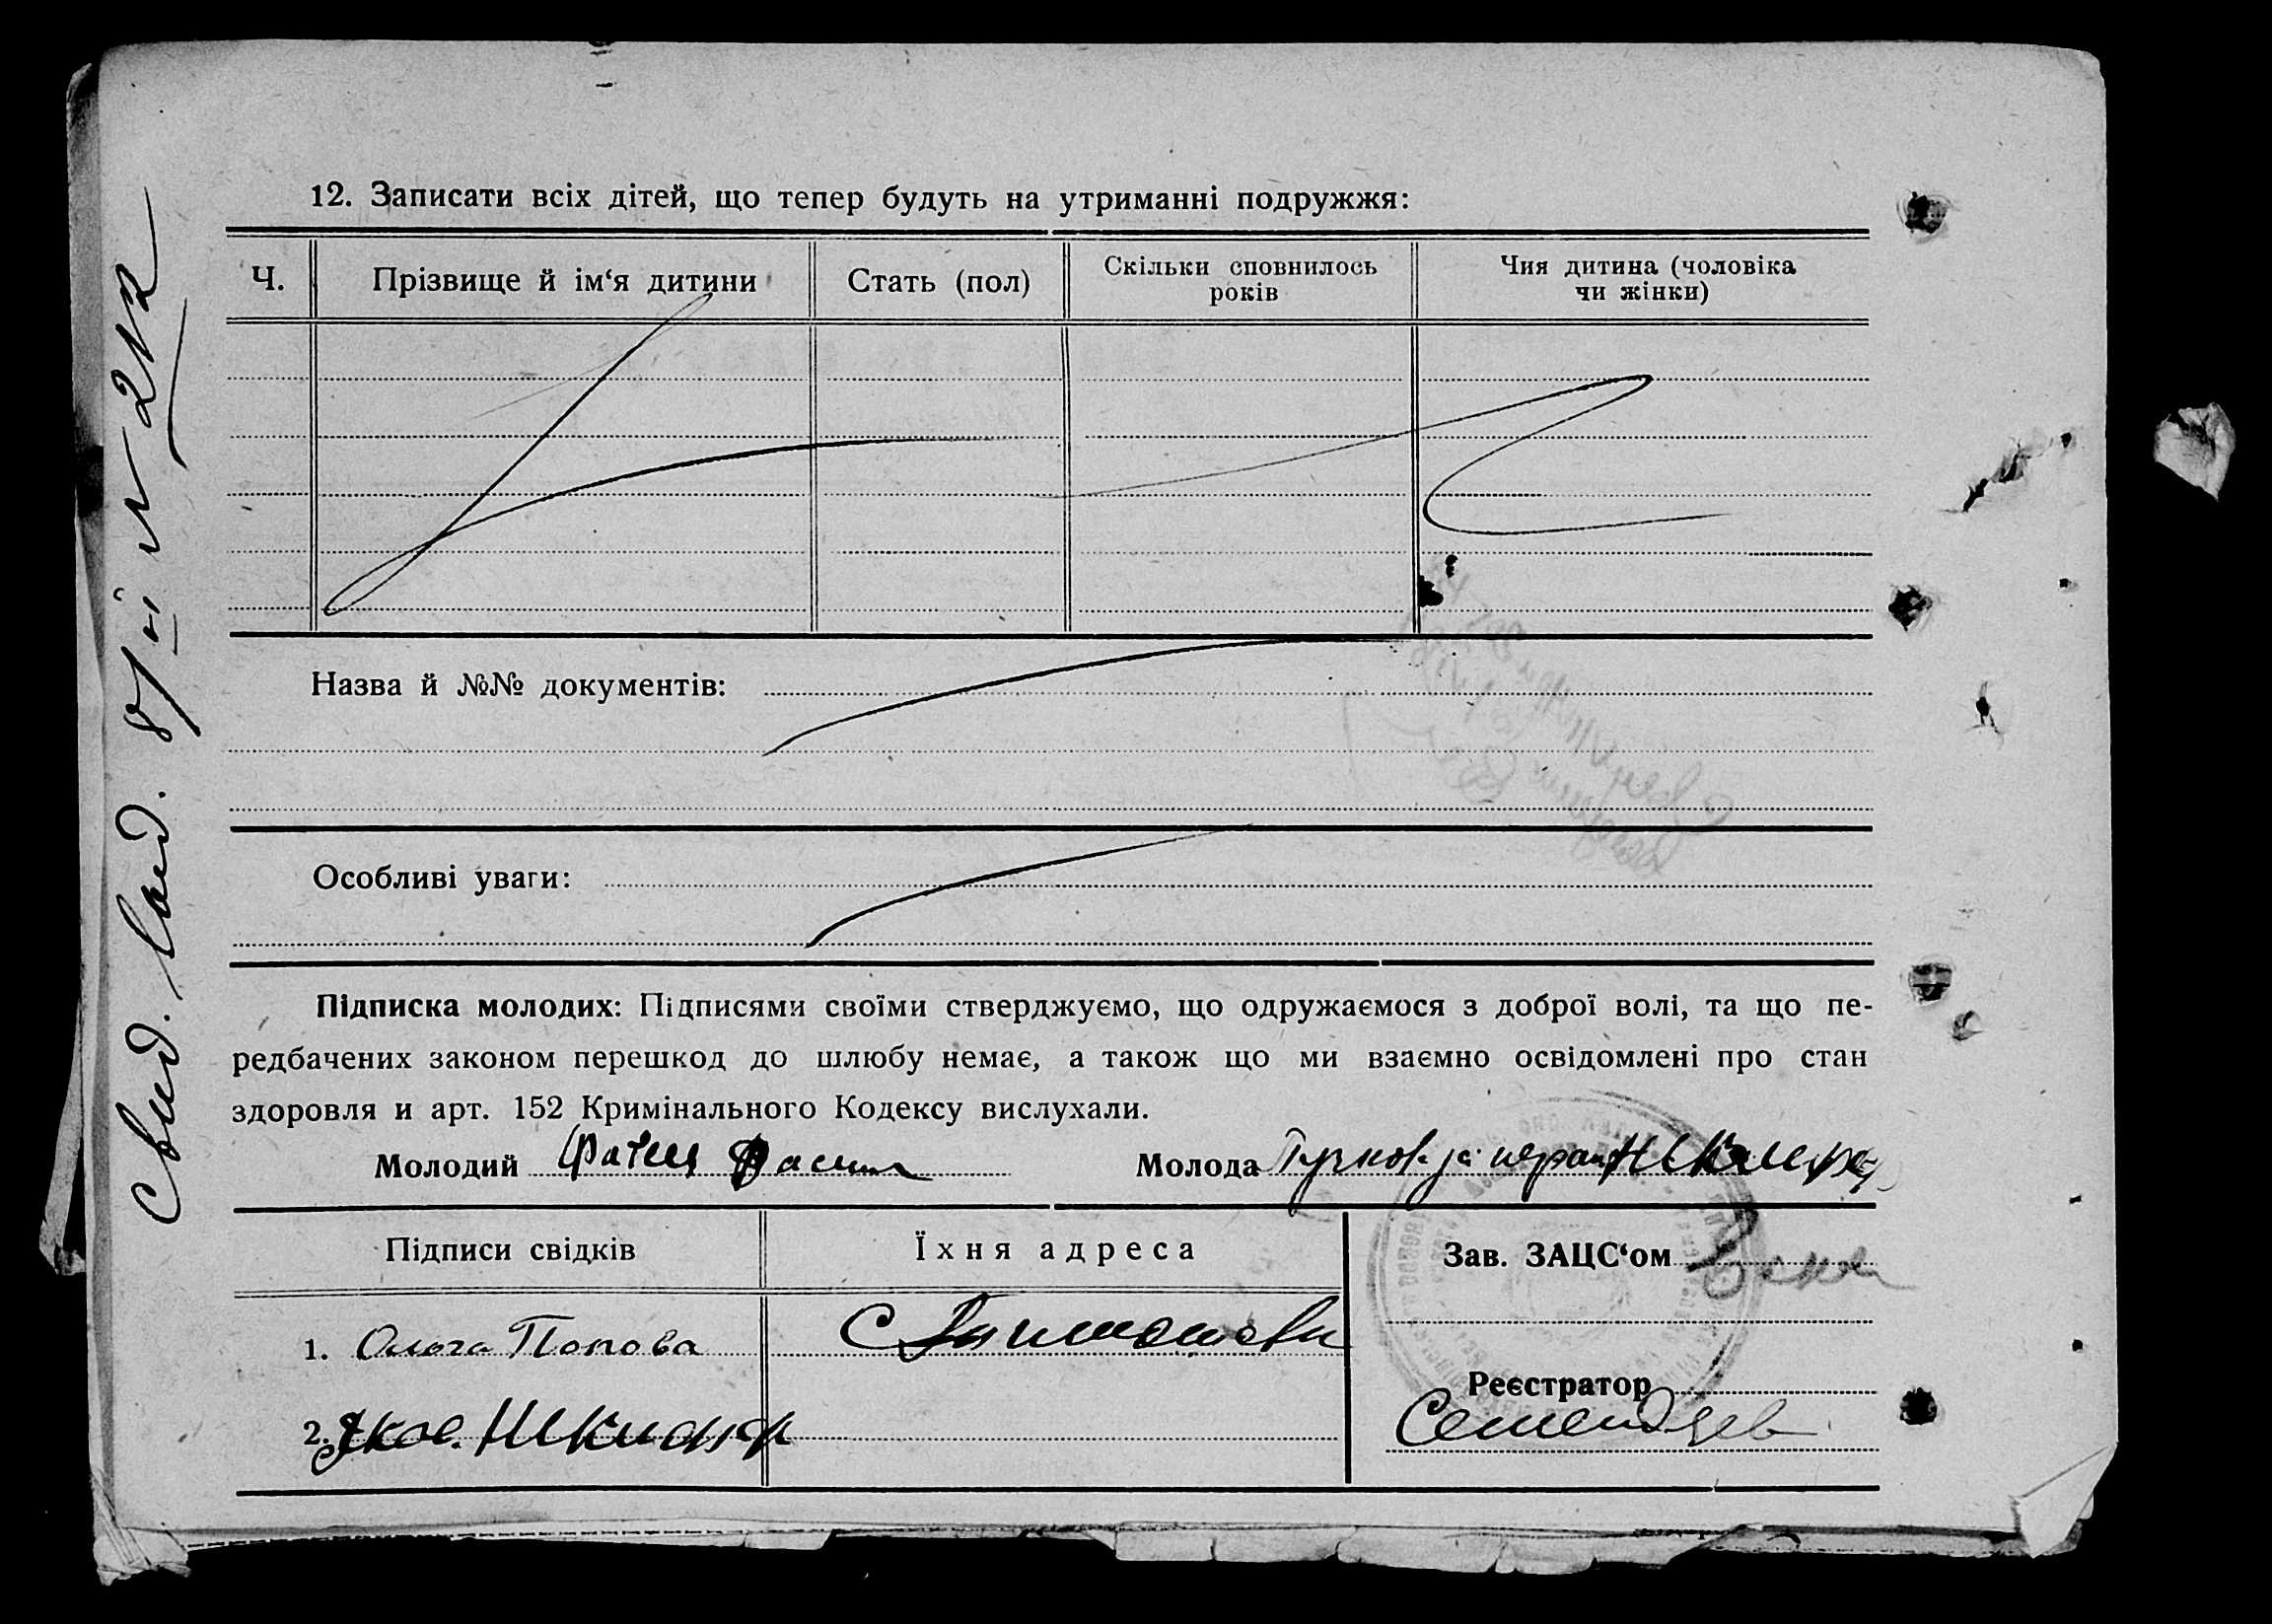 12. Записати всіх дітей, що тепер будуть на утриманні подружжя:
Ч.
Прізвище й ім‘я дитини
Стать (пол)
Скільки сповнилось
років
Чия дитина (чоловіка
чи жінки)
Назва й №№ документів:
Особливі уваги:
Підписка молодих: Підписями своїми стверджуємо, що одружаємося з доброї волі, та що пе-
редбачених законом перешкод до шлюбу немає, а також що ми взаємно освідомлені про стан
здоровля и арт. 152 Кримінального Кодексу вислухали.
Молодий
Молода
Підписи свідків
Їхня адреса
Зав. ЗАЦС‘ом
1. Ольга Попова
С
Реєстратор
2.
Свид.